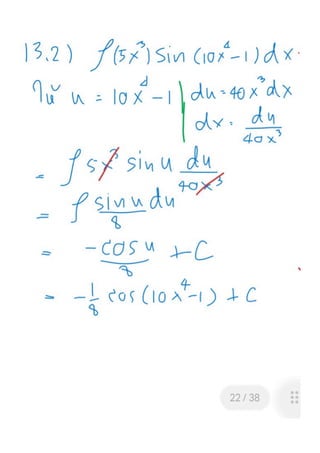 13.2) ∫(5x³) sin (10x⁴-1) dx.
ให้ u = 10x⁴ - 1 | du = 40x³dx
dx = du/40x³
= ∫ 5x³ sin u du/40x³
= ∫ sin u du/8
= -cos u/8 + C
= -1/8 cos (10x⁴-1) + C
22 / 38